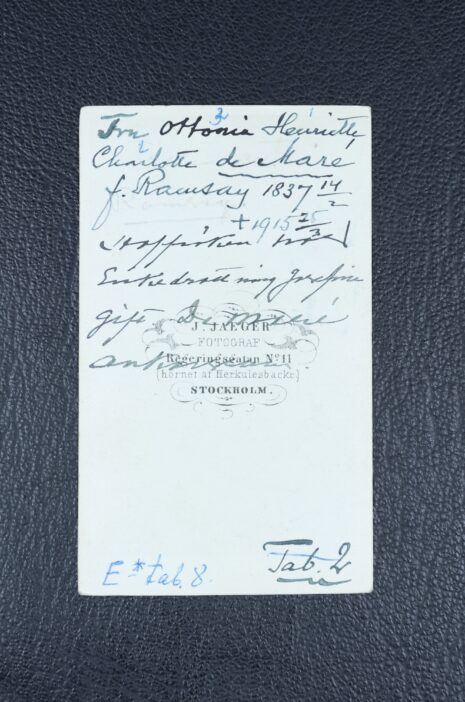 3 1
Fru Ottonie Henriette,
2
Charlotte de Maré
f. Ramsay 1837 14/2
+ 1915 25/3
Hoffröken hos
Enkedrottning Josefine
gift De Maré
J. JAEGER
FOTOGRAF
Regeringsgatan Nº 11
(hörnet af Herkulesbacke)
STOCKHOLM.
E* tab. 8.
Tab. 2